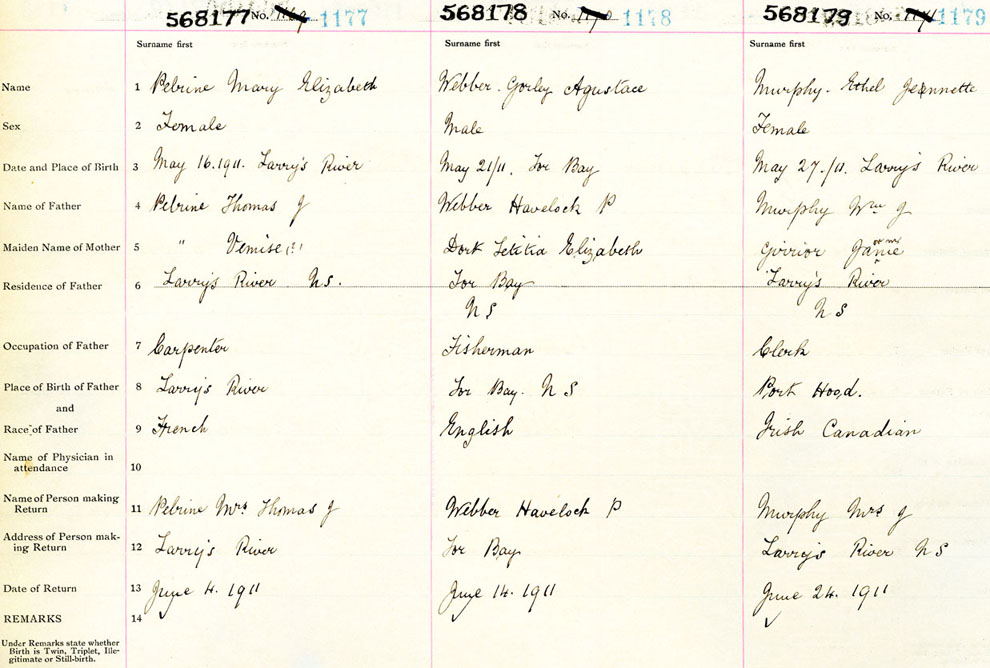 568177 No. 1177 568178 No. 1178 568179 No. 1179
Surname first Surname first Surname first
Name 1 Pelrine Mary Elizabeth Webber. Gorley Agustace Murphy. Ethel Jeannette
Sex 2 Female Male Female
Date and Place of Birth 3 May 16.1911. Larry's River May 21/11. Tor Bay May 27./11. Larry's River
Name of Father 4 Pelrine Thomas J Webber Havelock P Murphy Wm J
Maiden Name of Mother 5 " Venise (?) Dort Letitia Elizabeth Givrior Janie
Residence of Father 6 Larry's River N.S. Tor Bay Larry's River
N S N S
Occupation of Father 7 Carpenter Fisherman Clerk
Place of Birth of Father 8 Larry's River Tor Bay. N S Port Hood.
and
Race of Father 9 French English Irish Canadian
Name of Physician in
attendance 10
Name of Person making
Return 11 Pelrine Mrs Thomas J Webber Havelock P Murphy Mrs J
Address of Person mak-
ing Return 12 Larry's River Tor Bay Larry's River N S
Date of Return 13 June 4. 1911 June 14. 1911 June 24. 1911
REMARKS 14
Under Remarks state whether
Birth is Twin, Triplet, Ille-
gitimate or Still-birth.